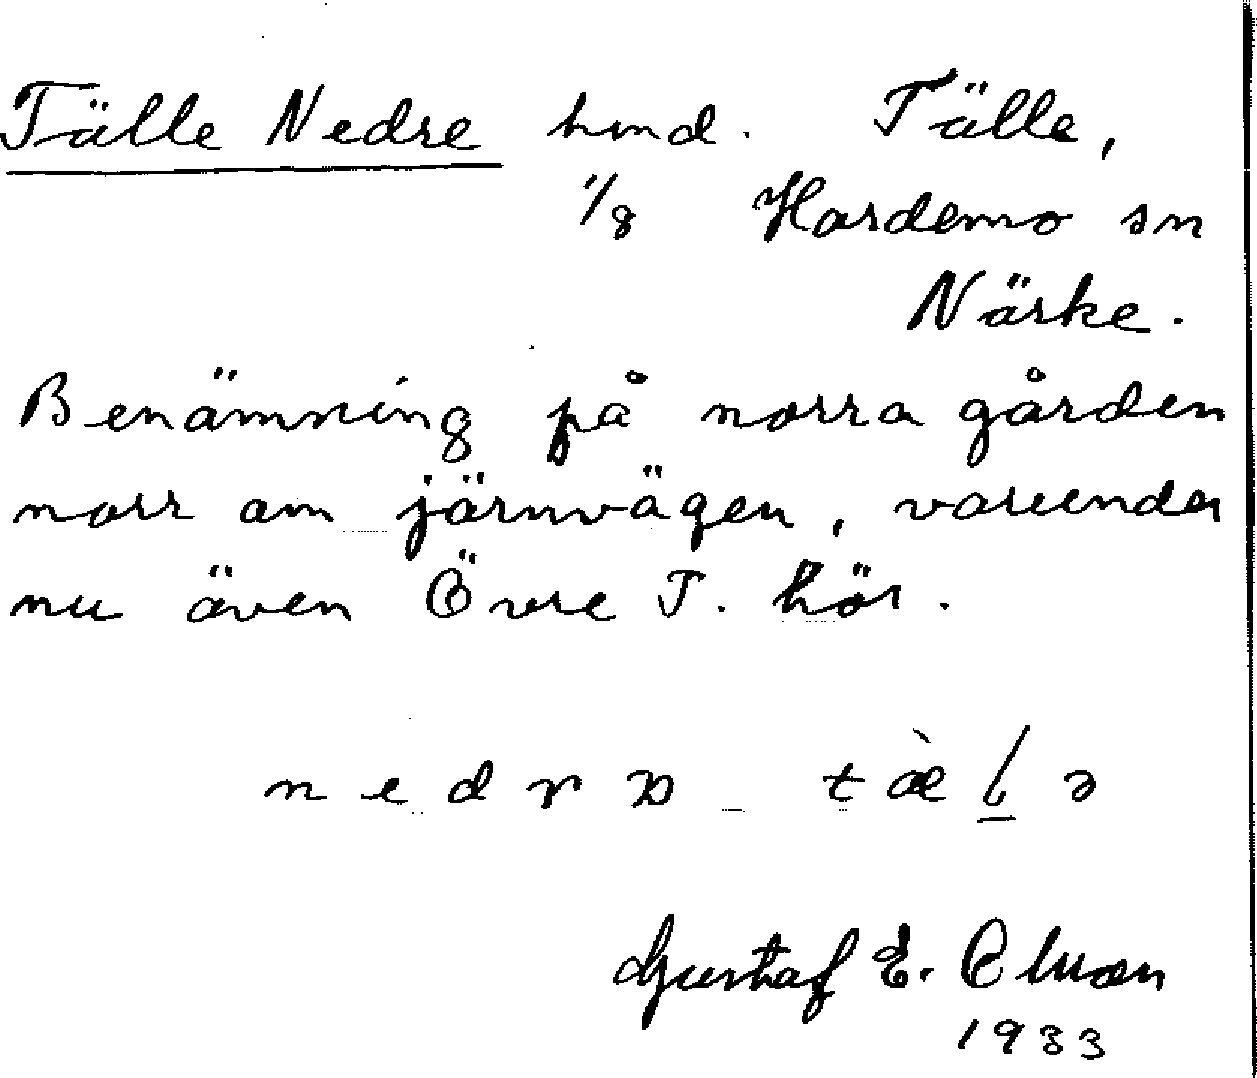 Tälle Nedre hmd. Tälle,
1/8 Hardemo sn
Närke.
Benämning på norra gården
norr om järnvägen, varunder
nu även Övre T. hör.
n e d r
Gustaf E.
1933